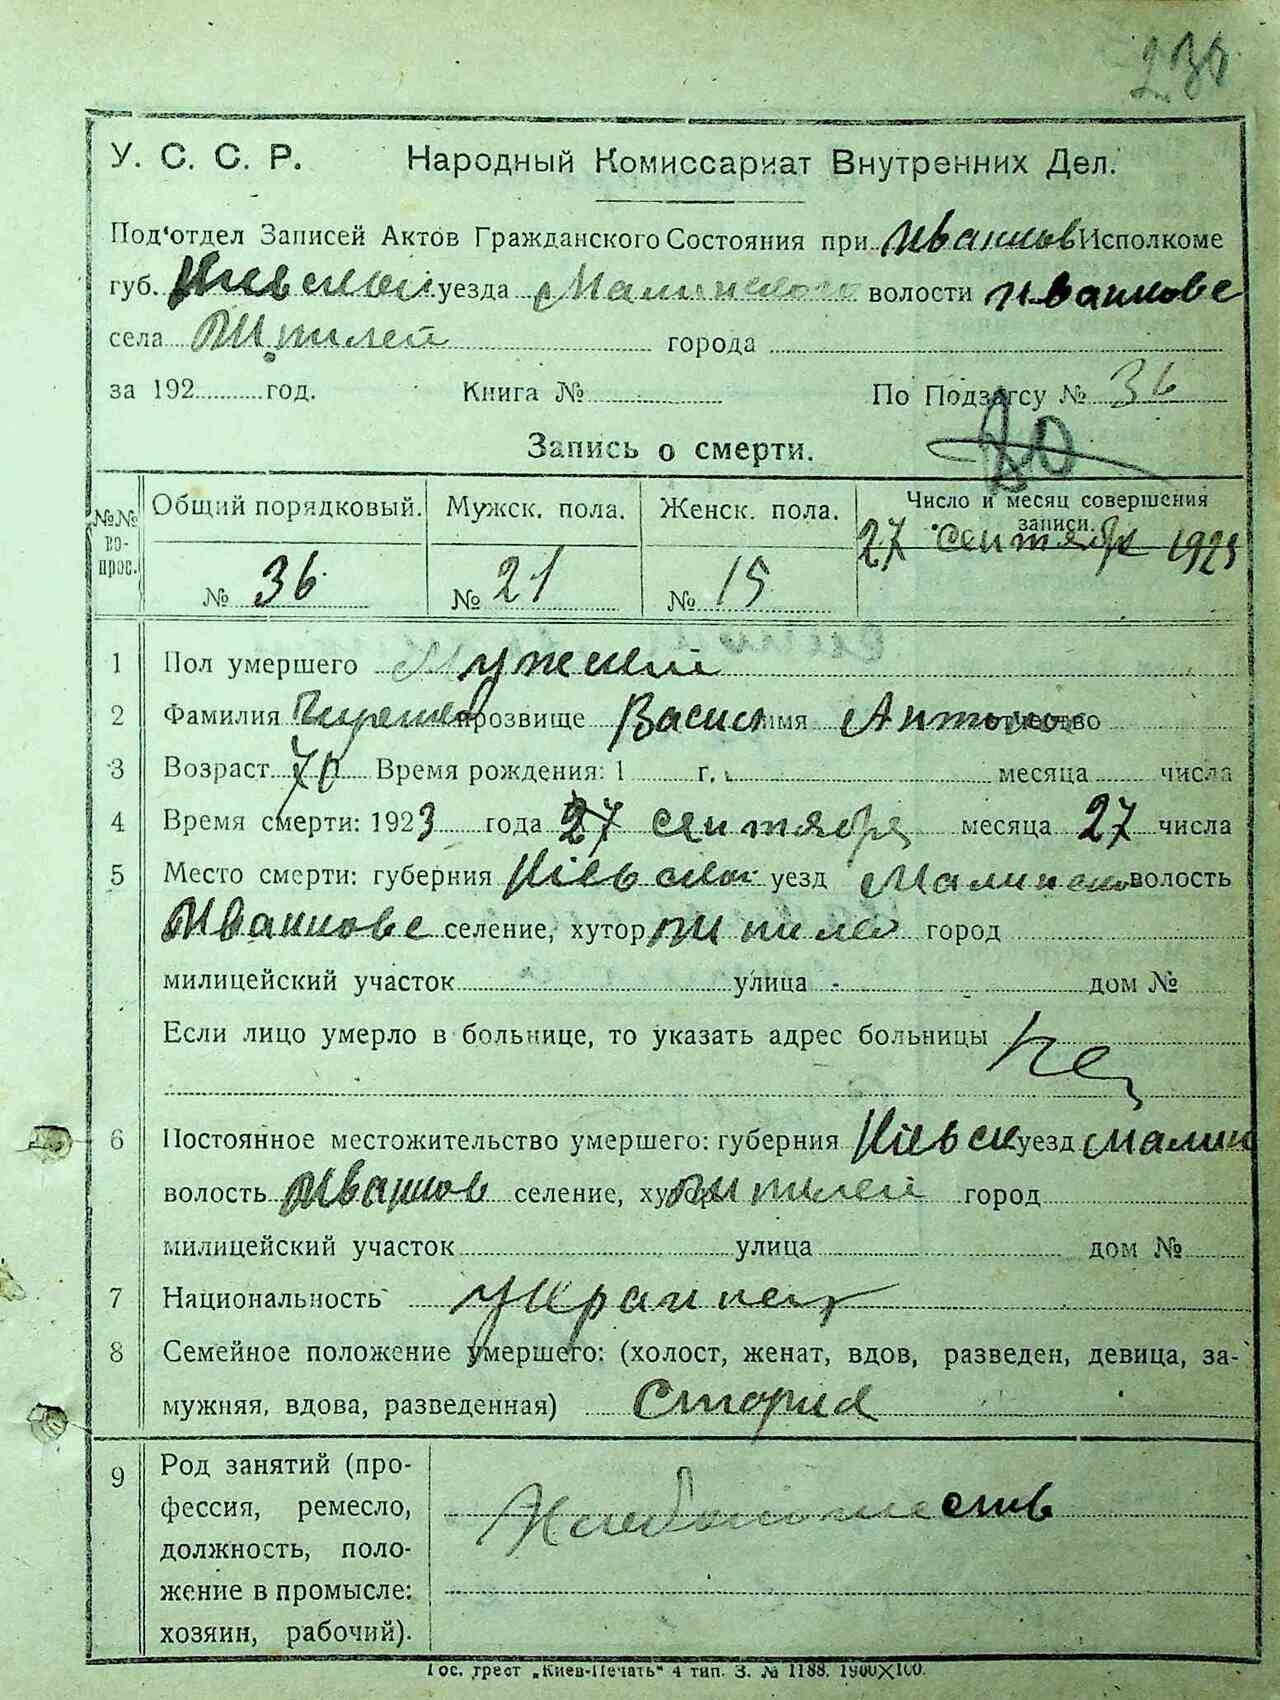 У. С. С. Р. Народный Комиссариат Внутренних Дел.
Под'отдел Записей Актов Гражданского Состояния при Иванков Исполкоме
губ. Киевской уезда Малинского волости Иванкове
села города
за 192 год. Книга № По Подзагсу № 36
Запись о смерти.
№№ во-прос. Общий порядковый. Мужск. пола. Женск. пола. Число и месяц совершения записи.
27 сентября 1923
№ 36 № 21 № 15
1 Пол умершего Мужский
2 Фамилия прозвище Васил имя Антонов отчество
3 Возраст 70 Время рождения: 1 г. месяца числа
4 Время смерти: 1923 года 27 сентября месяца 27 числа
5 Место смерти: губерния Кіевской уезд Малинско волость
Иванкове селение, хутор город
милицейский участок улица дом №
Если лицо умерло в больнице, то указать адрес больницы
6 Постоянное местожительство умершего: губерния Кіевск уезд Малин
волость Иванков селение, хутор город
милицейский участок улица дом №
7 Национальность украинец
8 Семейное положение умершего: (холост, женат, вдов, разведен, девица, за-
мужняя, вдова, разведенная)
9 Род занятий (про-
фессия, ремесло,
должность, поло-
жение в промысле:
хозяин, рабочий).
Гос. трест „Киев-Печать“ 4 тип. З. № 1188. 1900X100.